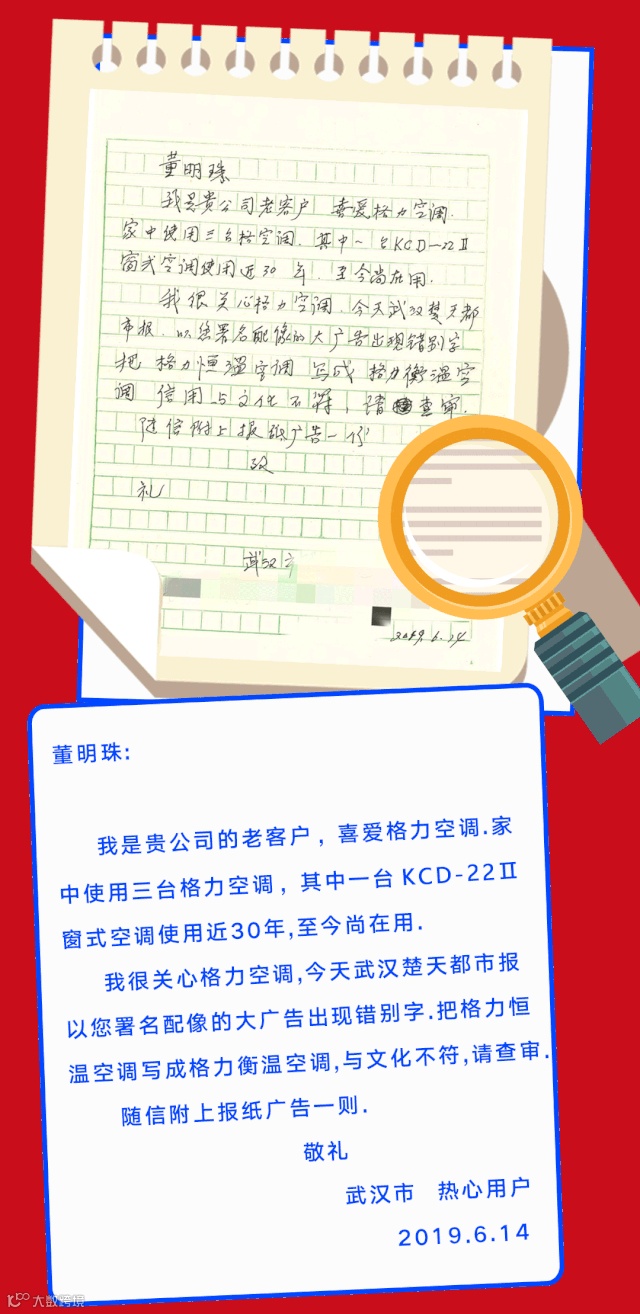 董明珠
我是贵公司老客户 喜爱格力空调.
家中使用三台格空调.其中一台KCD—22Ⅱ
窗式空调使用近30 年.至今尚在用.
我很关心格力空调.今天武汉楚天都
市报.以您署名配像的大广告出现错别字
把 格力恒温空调 写成 格力衡温空
调 信用与文化不符,请查审.
随信附上报纸广告一份
致
礼
武汉市
2019.6.14
董明珠:
我是贵公司的老客户, 喜爱格力空调.家
中使用三台格力空调, 其中一台 KCD-22Ⅱ
窗式空调使用近30年,至今尚在用.
我很关心格力空调,今天武汉楚天都市报
以您署名配像的大广告出现错别字.把格力恒
温空调写成格力衡温空调,与文化不符,请查审.
随信附上报纸广告一则.
敬礼
武汉市 热心用户
2019.6.14
大数跨境